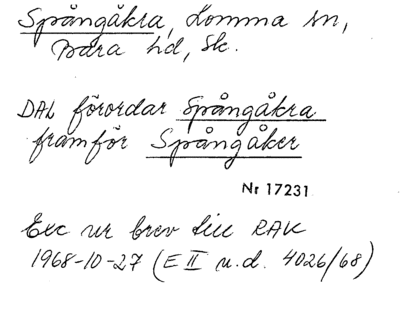 Spångåkra, Lomma sn,
Bara hd, Sk.
DAL förordar Spångåkra
framför Spångåker
Nr 17231
Exc ur brev till RAK
1968-10-27 (E II u.d. 4026/68)